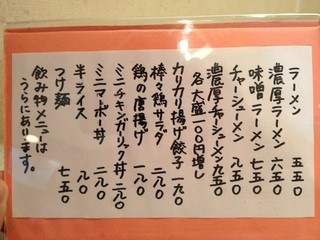 ラーメン 五五〇
濃厚ラーメン 六五〇
味噌ラーメン 七五〇
チャーシューメン 八五〇
濃厚チャーシューメン 九五〇
各大盛一〇〇円増し
カリカリ揚げ餃子 一九〇
棒々鶏サラダ 二八〇
鶏の唐揚げ 一八〇
ミニチキンガーリック丼 二八〇
ミニマーボー丼 二八〇
半ライス 八〇
つけ麺 七五〇
飲み物メニューは
うらにあります。